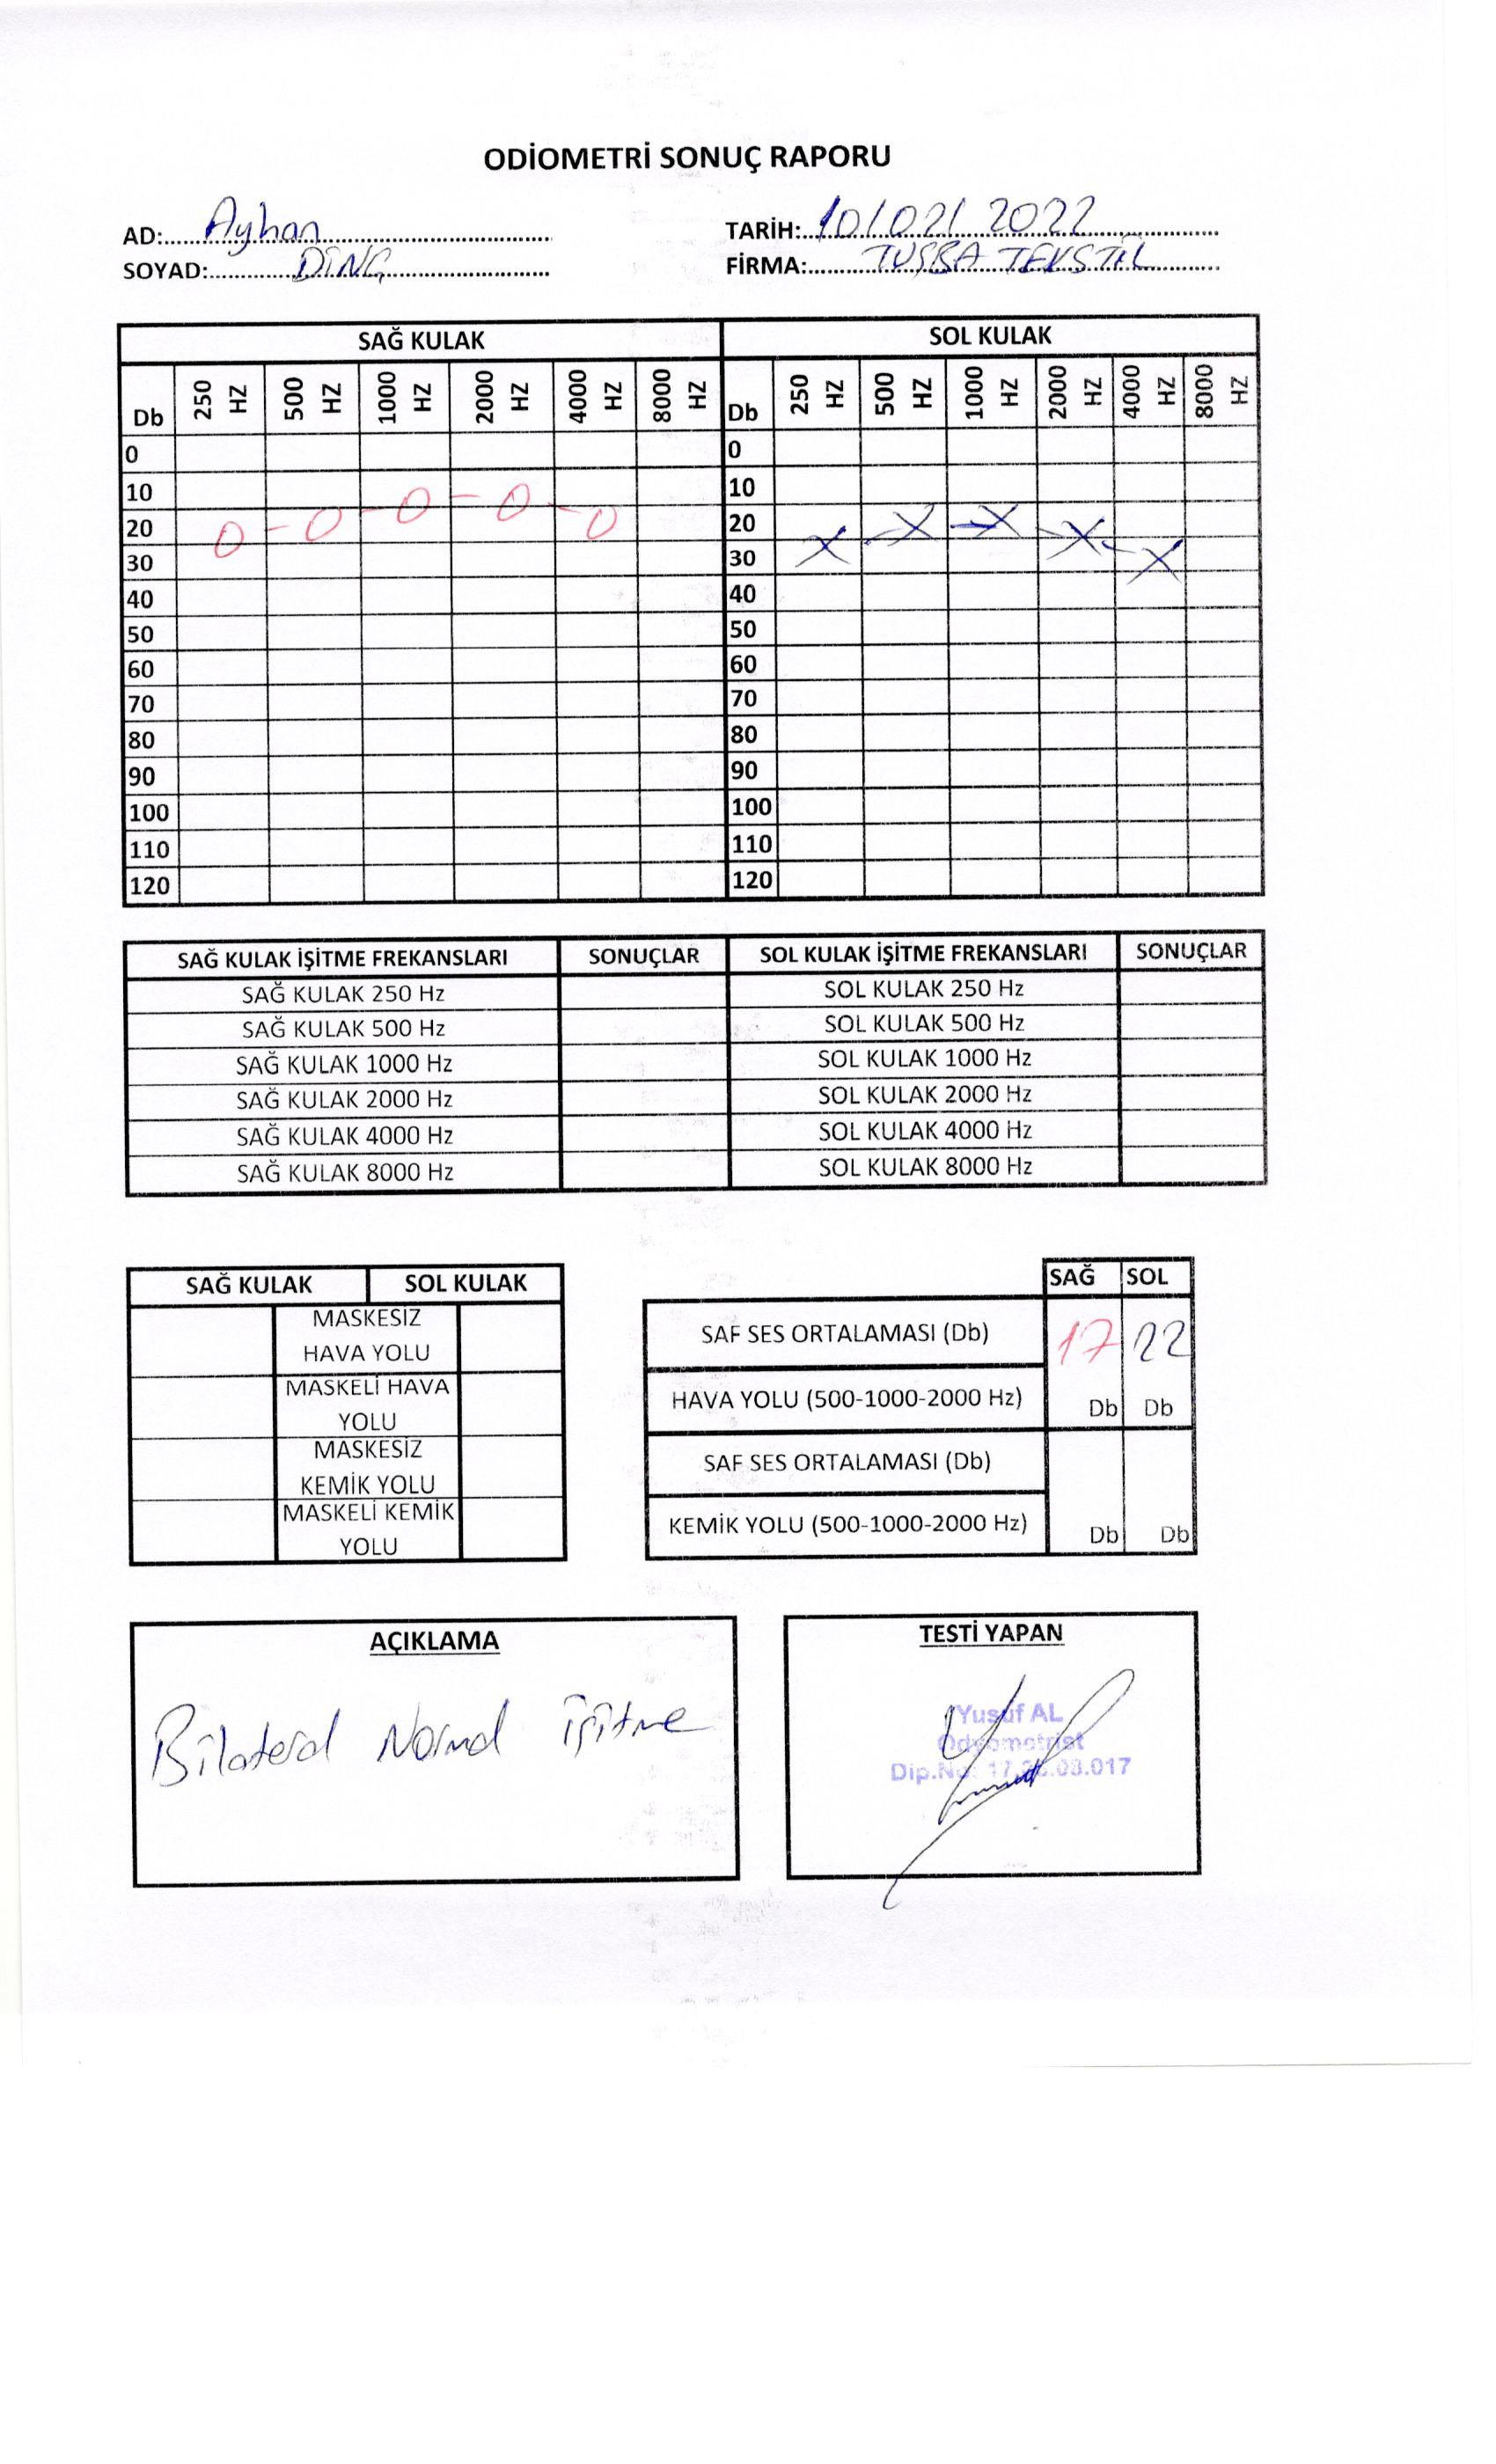 ODİOMETRİ SONUÇ RAPORU
AD: Ayhan TARİH: 10/02/2022
SOYAD: DİNÇ FİRMA: TUŞBA TEKSTİL
SAĞ KULAK SOL KULAK
Db 250 HZ 500 HZ 1000 HZ 2000 HZ 4000 HZ 8000 HZ Db 250 HZ 500 HZ 1000 HZ 2000 HZ 4000 HZ 8000 HZ
0 0
10 10
20 20
30 30
40 40
50 50
60 60
70 70
80 80
90 90
100 100
110 110
120 120
SAĞ KULAK İŞİTME FREKANSLARI SONUÇLAR SOL KULAK İŞİTME FREKANSLARI SONUÇLAR
SAĞ KULAK 250 Hz SOL KULAK 250 Hz
SAĞ KULAK 500 Hz SOL KULAK 500 Hz
SAĞ KULAK 1000 Hz SOL KULAK 1000 Hz
SAĞ KULAK 2000 Hz SOL KULAK 2000 Hz
SAĞ KULAK 4000 Hz SOL KULAK 4000 Hz
SAĞ KULAK 8000 Hz SOL KULAK 8000 Hz
SAĞ KULAK SOL KULAK
MASKESİZ
HAVA YOLU
MASKELİ HAVA
YOLU
MASKESİZ
KEMİK YOLU
MASKELİ KEMİK
YOLU
SAĞ SOL
SAF SES ORTALAMASI (Db) 17 22
HAVA YOLU (500-1000-2000 Hz) Db Db
SAF SES ORTALAMASI (Db)
KEMİK YOLU (500-1000-2000 Hz) Db Db
AÇIKLAMA
Bilateral Normal işitme
TESTİ YAPAN
Yusuf AL
Odyometrist
Dip.No: